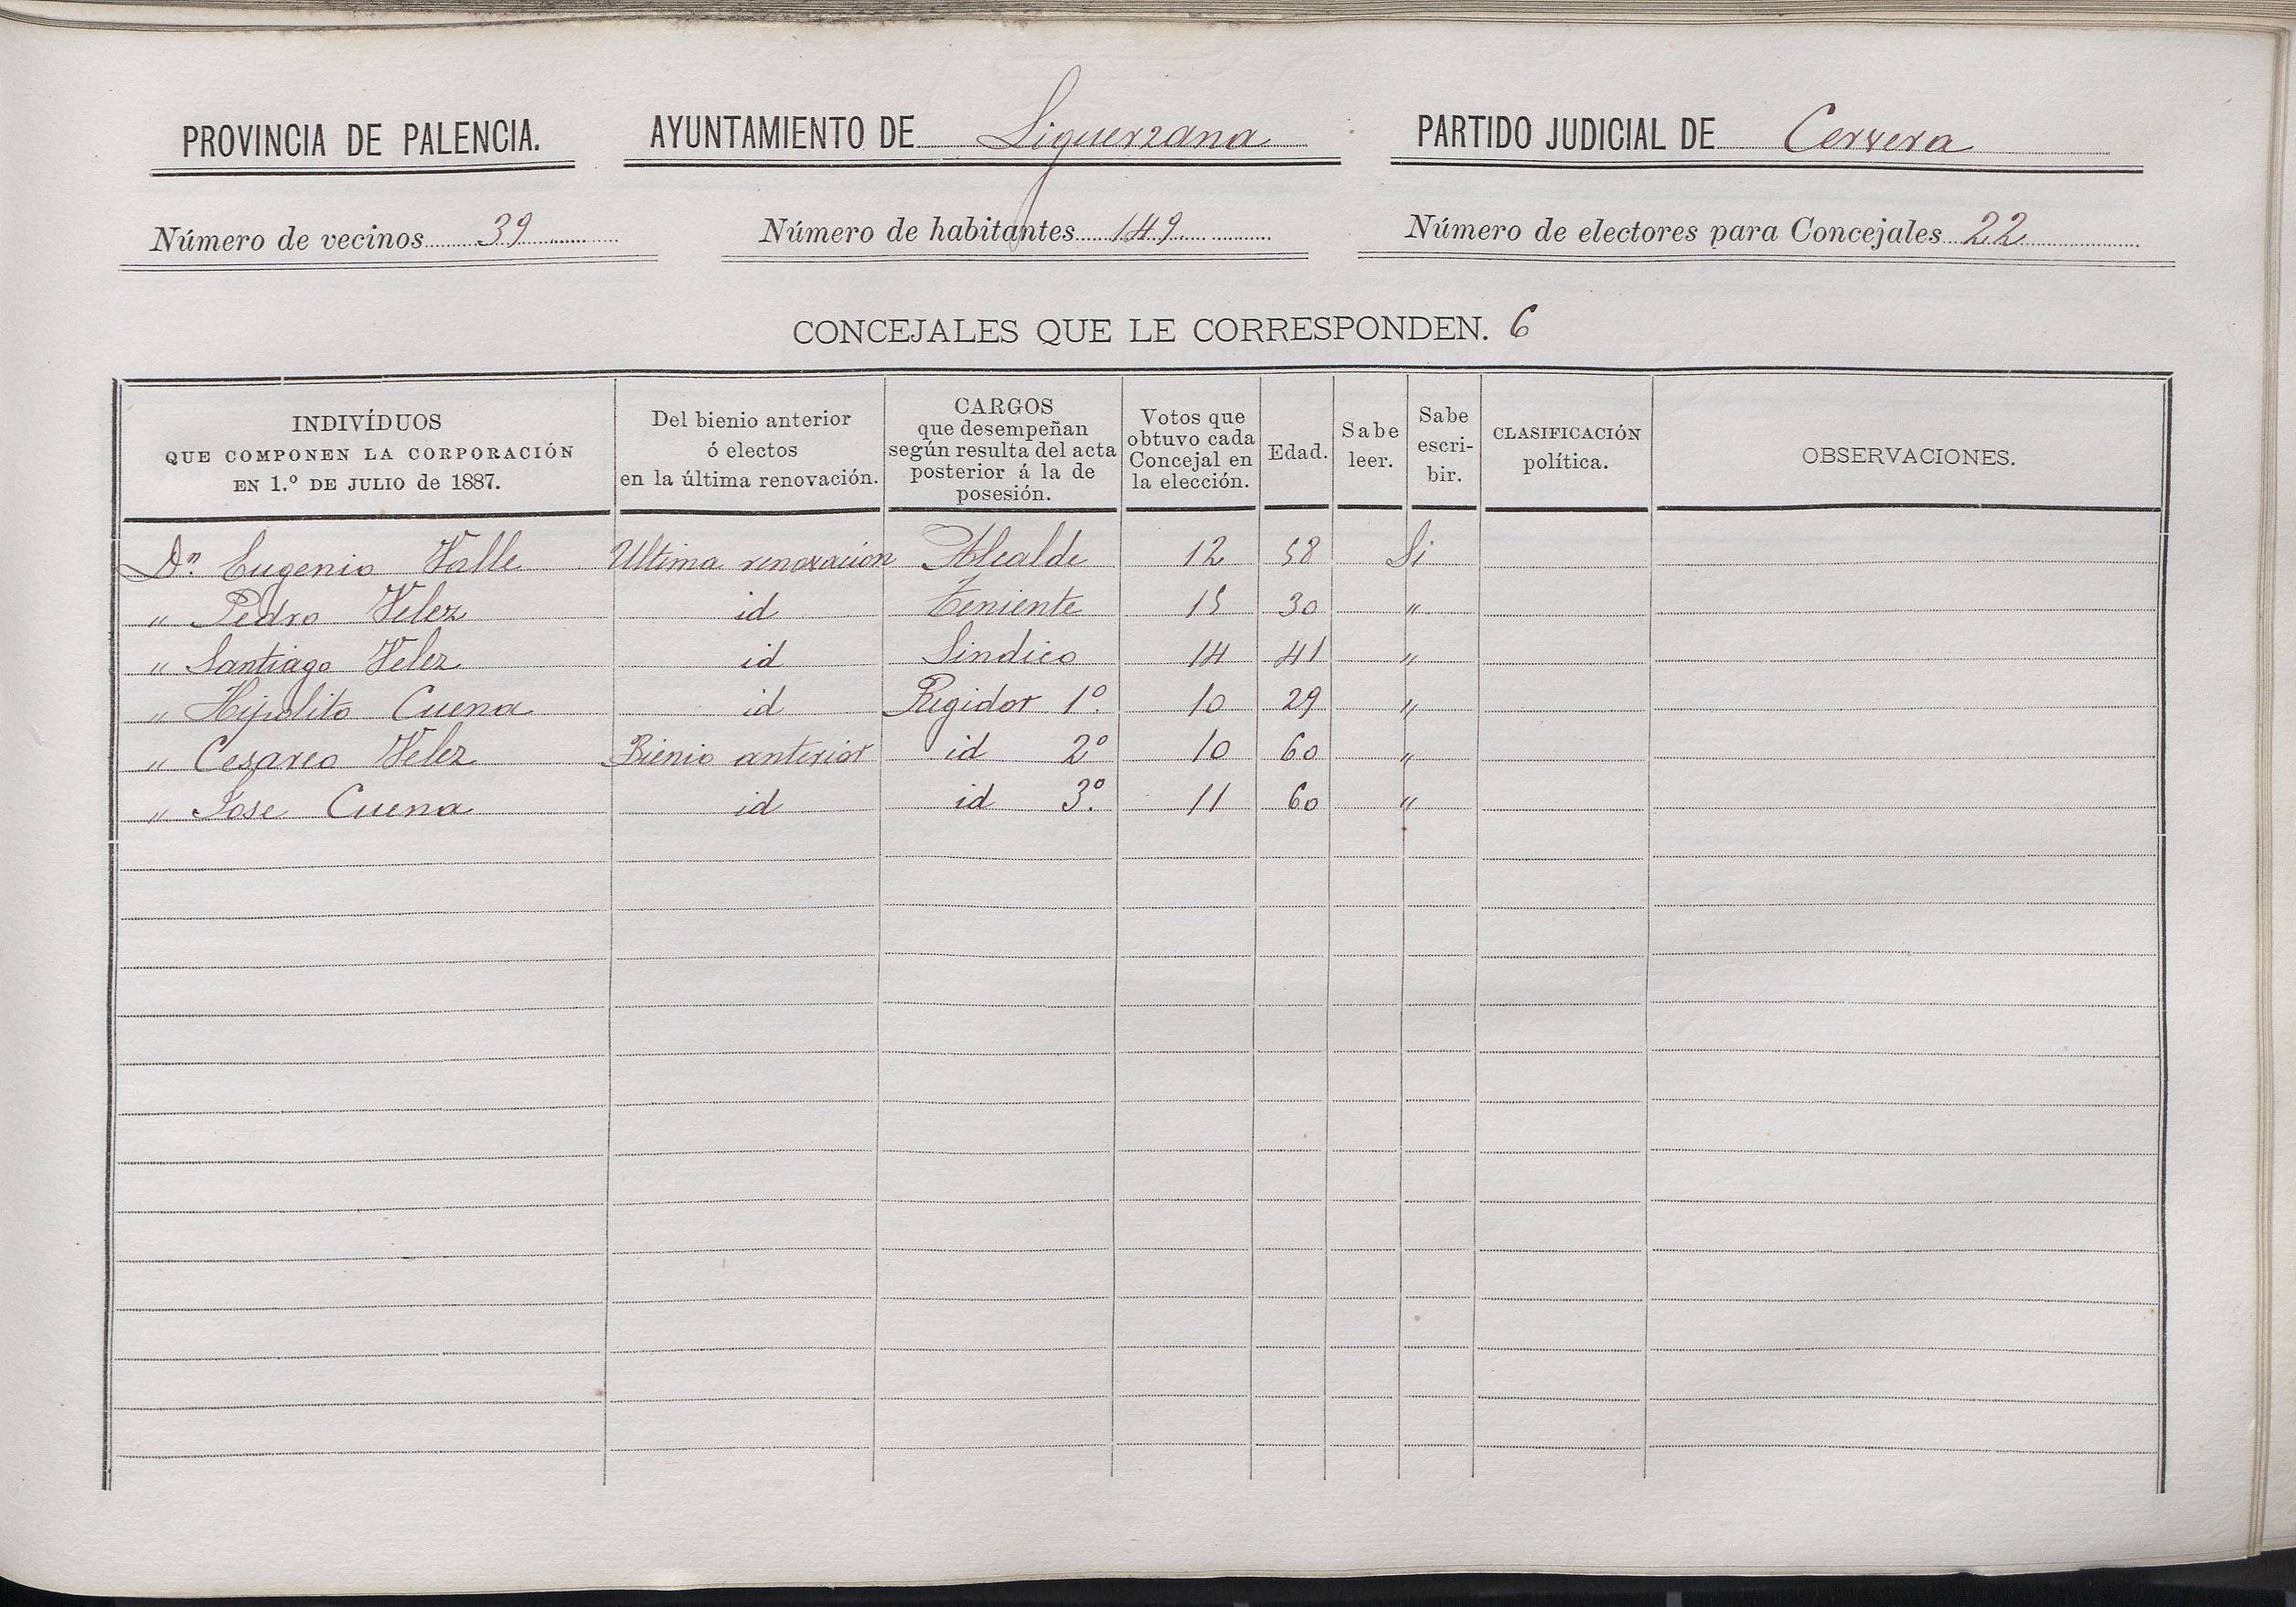 PROVINCIA DE PALENCIA. AYUNTAMIENTO DE Liguerzana PARTIDO JUDICIAL DE Cervera
Número de vecinos 39 Número de habitantes 149 Número de electores para Concejales 22
CONCEJALES QUE LE CORRESPONDEN. 6
INDIVÍDUOS
QUE COMPONEN LA CORPORACIÓN
EN 1.º DE JULIO de 1887.
Del bienio anterior
ó electos
en la última renovación.
CARGOS
que desempeñan
según resulta del acta
posterior á la de
posesión.
Votos que
obtuvo cada
Concejal en
la elección.
Edad.
Sabe
leer.
Sabe
escri-
bir.
CLASIFICACIÓN
política.
OBSERVACIONES.
Dn. Eugenio Valle Ultima renovacion Alcalde 12 58 Si
" Pedro Velez id Teniente 15 30 "
" Santiago Velez id Sindico 14 41 "
" Hipolito Cuena id Regidor 1º. 10 29 "
" Cesareo Velez Bienio anterior id 2º 10 60 "
" Jose Cuena id id 3º. 11 60 "